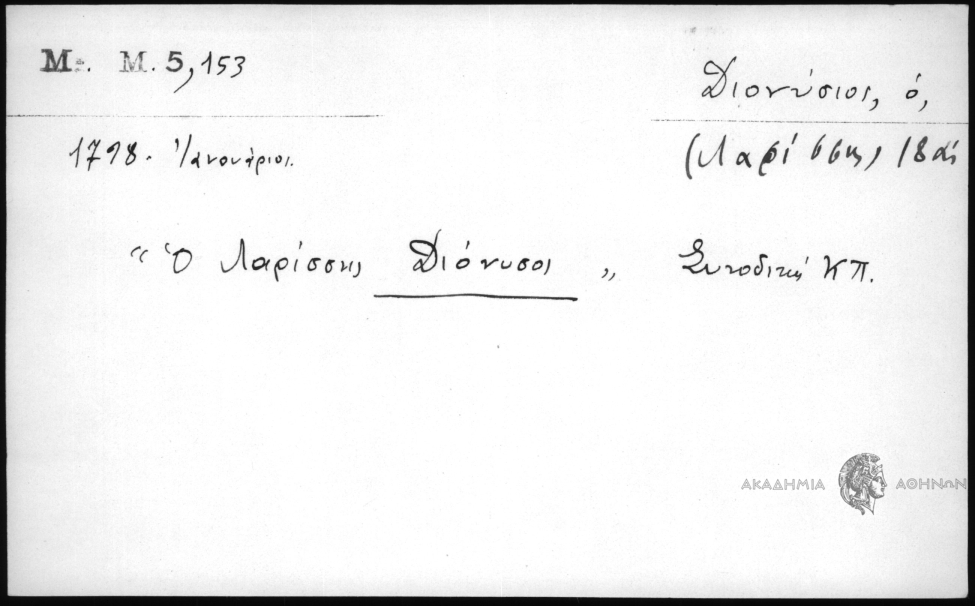 Με. Μ. 5,153
Διονύσιος, ὁ,
(Λαρίσσης) 18 αἰ
1798. Ἰανουάριος.
“ Ὁ Λαρίσσης Διόνυσος „ Συνοδική ΚΠ.
ΑΚΑΔΗΜΙΑ ΑΘΗΝΩΝ